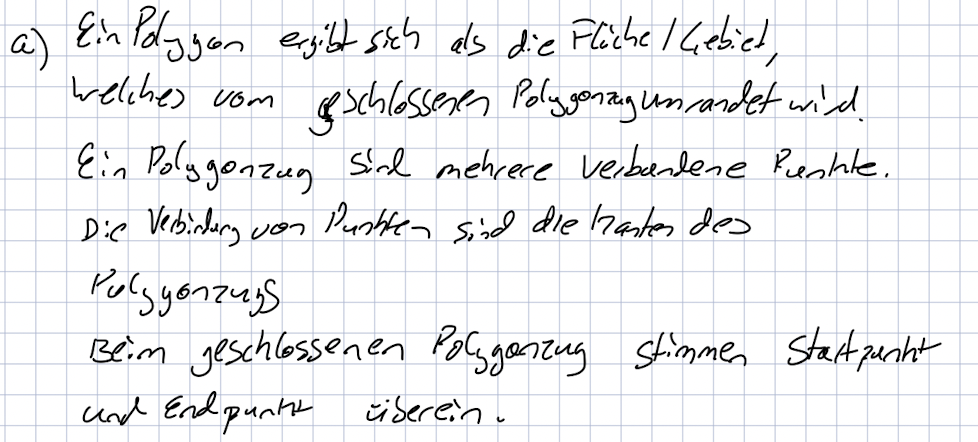 a) Ein Polygon ergibt sich als die Fläche/Gebiet,
welches vom geschlossenen Polygonzug umrandet wird.
Ein Polygonzug sind mehrere verbundene Punkte.
Die Verbindung von Punkten sind die Kanten des
Polygonzugs
Beim geschlossenen Polygonzug stimmen Startpunkt
und Endpunkt überein.